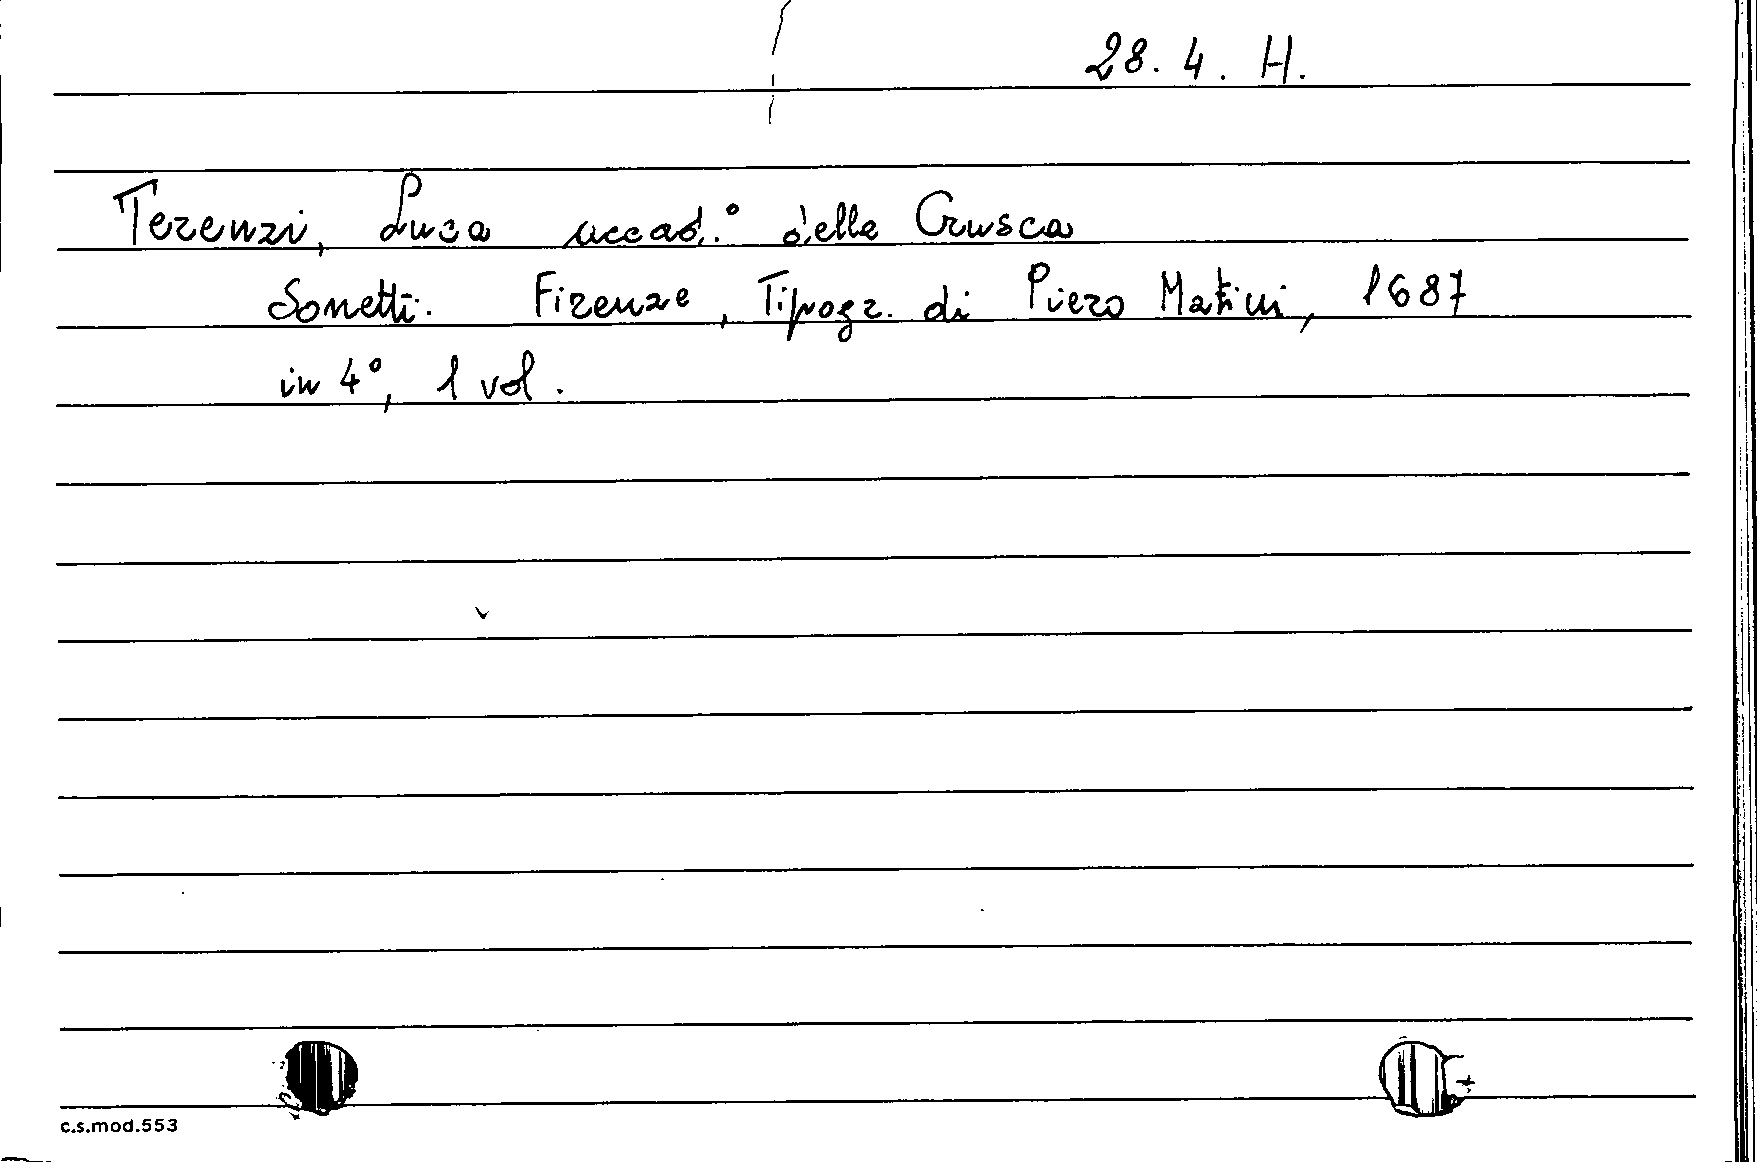 28. 4. H.
Terenzi, Luca accad.º della Crusca
Sonetti. Firenze, Tipogr. di Piero Matini, 1687
in 4º, 1 vol.
c.s.mod.553